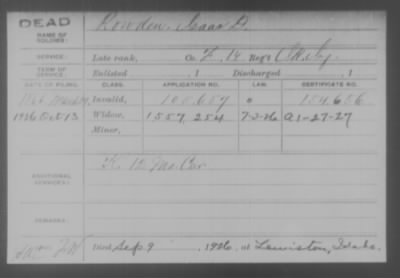 DEAD
NAME OF SOLDIER: Rowden, Isaac D.
SERVICE: Late rank, Co. F, 14 Reg't
TERM OF SERVICE: Enlisted , 1 Discharged , 1
DATE OF FILING. CLASS. APPLICATION NO. LAW. CERTIFICATE NO.
Invalid, 100.657 154.656
1926 Oct 13 Widow, 1557,254 7-3-26 A1-27-27
Minor,
ADDITIONAL SERVICES: K 12 Mo Cav
REMARKS:
Died Sep 9, 1926, at Lewiston, Idaho.